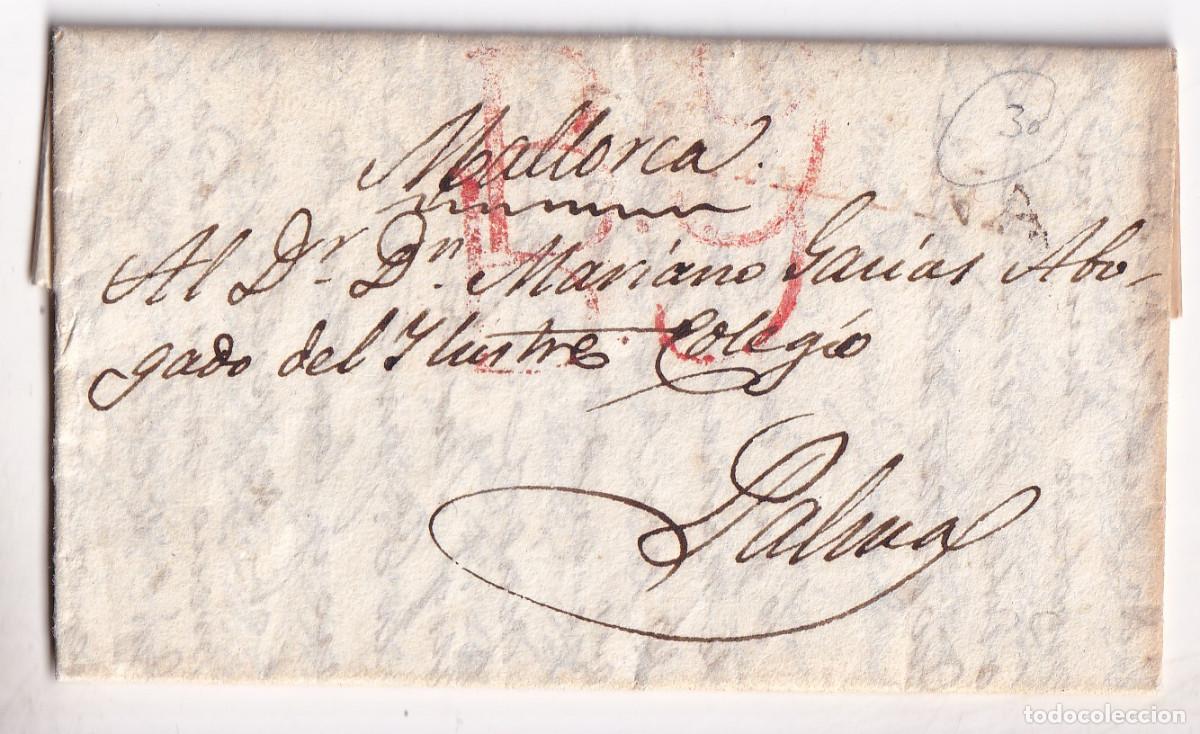 30
Mallorca.
Al Dr. Dn. Mariano Gacías Abo-
gado del Ylustre Colegio
Palma
todocoleccion